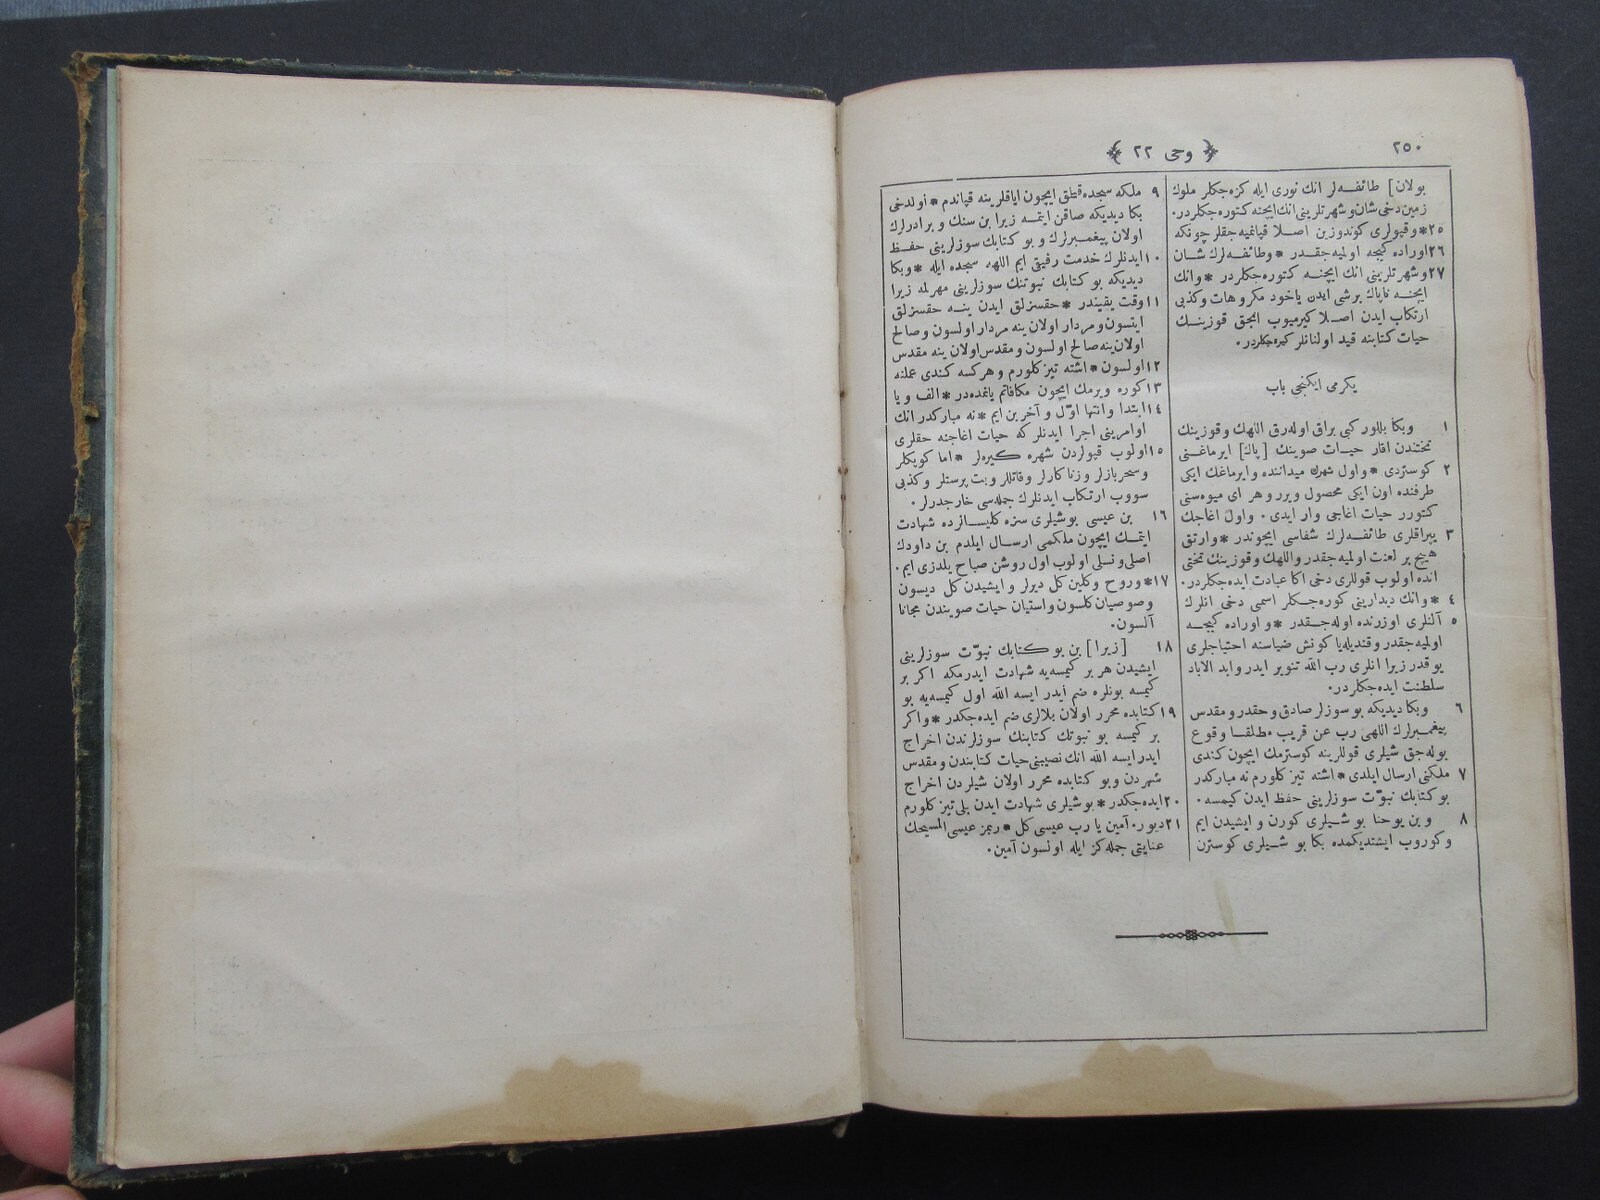 ٢٥٠
﴿ وحى ٢٢ ﴾
بولان] طائفه‌لر انك نورى ايله كزه‌جكلر ملوك
زمين دخى شان و شهرتلرينى انك ايچنه كتوره‌جكلردر.
٢٥ * وقپولرى كوندوزين اصلا قپانميه‌جقلر چونكه
٢٦ اوراده كيجه اولميه‌جقدر * وطائفه‌لرك شان
٢٧ وشهرتلرينى انك ايچنه كتوره‌جكلردر * وانك
ايچنه ناپاك برشى ايدن ياخود مكروهات وكذبى
ارتكاب ايدن اصلا كيرميوب انجق قوزينك
حيات كتابنه قيد اولنانلر كيره‌جكلردر.
يكرمى ايكنجى باب
١ وبكا بللور كبى براق اوله‌رق اللهك وقوزينك
تختندن اقار حيات صوينك [پاك] ايرماغنى
٢ كوستردى * واول شهرك ميداننده وايرماغك ايكى
طرفنده اون ايكى محصول ويرر و هر اى ميوه‌سنى
كتورر حيات اغاجى وار ايدى. واول اغاجك
٣ يپراقلرى طائفه‌لرك شفاسى ايچوندر * وارتق
هيچ بر لعنت اولميه‌جقدر واللهك وقوزينك تختى
انده اولوب قوللرى دخى اكا عبادت ايده‌جكلردر.
٤ * وانك ديدارينى كوره‌جكلر اسمى دخى انلرك
٥ آلنلرى اوزرنده اوله‌جقدر * و اوراده كيجه
اولميه جقدر وقنديله يا كونش ضياسنه احتياجلرى
يوقدر زيرا انلرى رب الله تنوير ايدر وابد الاباد
سلطنت ايده‌جكلردر.
٦ وبكا ديديكه بو سوزلر صادق و حقدر و مقدس
پيغمبرلرك اللهى رب عن قريب مطلقا وقوع
بوله‌جق شيلرى قوللرينه كوسترمك ايچون كندى
٧ ملكنى ارسال ايلدى * اشته تيز كلورم نه مباركدر
بو كتابك نبوّت سوزلرينى حفظ ايدن كيمسه.
٨ و بن يوحنا بو شيلرى كورن و ايشيدن ايم
و كوروب ايشتديكمده بكا بو شيلرى كوسترن
٩ ملكه سجده قلمق ايچون اياقلرينه قپاندم * اولدخى
بكا ديديكه صاقن ايتمه زيرا بن سنك و برادرلرك
اولان پيغمبرلرك و بو كتابك سوزلرينى حفظ
١٠ ايدنلرك خدمت رفيقى ايم اللهه سجده ايله * وبكا
ديديكه بو كتابك نبوتنك سوزلرينى مهرلمه زيرا
١١ وقت يقيندر * حقسزلق ايدن ينه حقسزلق
ايتسون و مردار اولان ينه مردار اولسون و صالح
اولان ينه صالح اولسون و مقدس اولان ينه مقدس
١٢ اولسون * اشته تيز كلورم و هركسه كندى عملنه
١٣ كوره ويرمك ايچون مكافاتم يانمده‌در * الف و يا
١٤ ابتدا وانتها اوّل و آخر بن ايم * نه مباركدر انك
اوامرينى اجرا ايدنلر كه حيات اغاجنه حقلرى
١٥ اولوب قپولردن شهره كيره‌لر * اما كوپكلر
وسحربازلر و زناكارلر و قاتللر و بت پرستلر و كذبى
سووب ارتكاب ايدنلرك جمله‌سى خارجدرلر.
١٦ بن عيسى بو شيلرى سزه كليسالرده شهادت
ايتمك ايچون ملكمى ارسال ايلدم بن داودك
اصلى و نسلى اولوب اول روشن صباح يلدزى ايم.
١٧ * وروح و كلين كل ديرلر و ايشيدن كل ديسون
و صوصيان كلسون و استيان حيات صويندن مجانا
آلسون.
١٨ [زيرا] بن بو كتابك نبوّت سوزلرينى
ايشيدن هر بر كيمسه‌يه شهادت ايدرمكه اكر بر
كيمسه بونلره ضم ايدر ايسه الله اول كيمسه‌يه بو
١٩ كتابده محرر اولان بلالرى ضم ايده‌جكدر * واكر
بر كيمسه بو نبوتك كتابنك سوزلرندن اخراج
ايدر ايسه الله انك نصيبنى حيات كتابندن و مقدس
شهردن و بو كتابده محرر اولان شيلردن اخراج
٢٠ ايده‌جكدر * بو شيلرى شهادت ايدن بلى تيز كلورم
٢١ ديور. آمين يا رب عيسى كل * ربمز عيسى المسيحك
عنايتى جمله‌كز ايله اولسون آمين.